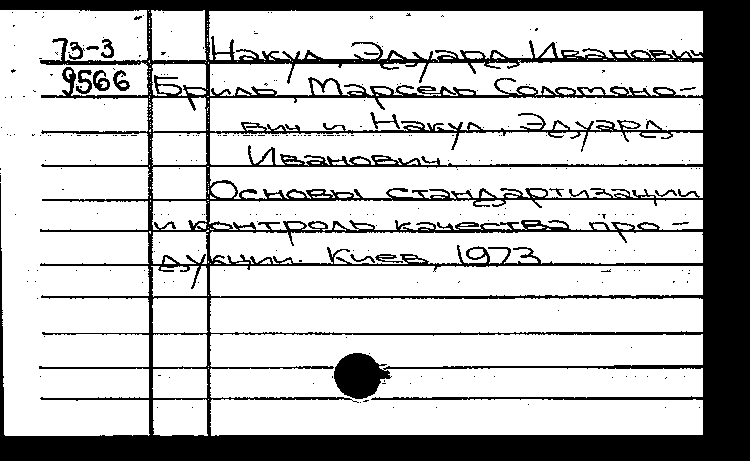 73-3 Накул, Эдуард Иванович
9566 Бриль, Марсель Соломоно-
вич и Накул, Эдуард
Иванович.
Основы стандартизации
и контроль качества про-
дукции. Киев, 1973.